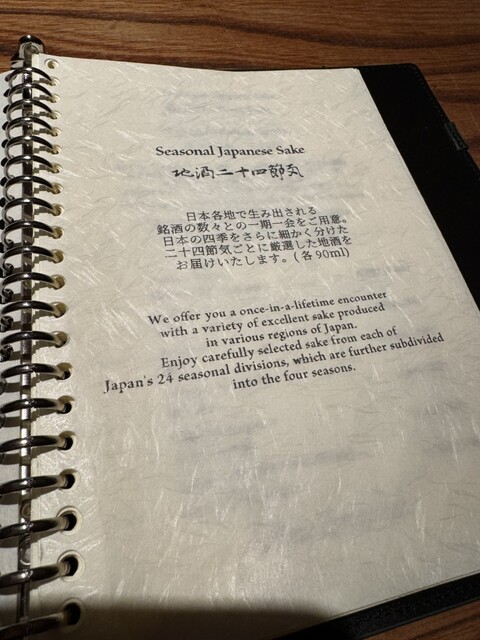 Seasonal Japanese Sake
地酒二十四節気
日本各地で生み出される
銘酒の数々との一期一会をご用意。
日本の四季をさらに細かく分けた
二十四節気ごとに厳選した地酒を
お届けいたします。(各90ml)
We offer you a once-in-a-lifetime encounter
with a variety of excellent sake produced
in various regions of Japan.
Enjoy carefully selected sake from each of
Japan's 24 seasonal divisions, which are further subdivided
into the four seasons.